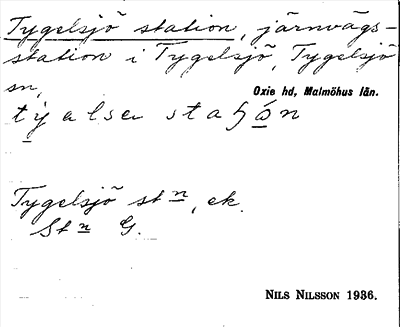 Tygelsjö station, järnvägs-
station i Tygelsjö, Tygelsjö
sn,
Oxie hd, Malmöhus län.
Tygelsjö stn, ek.
Stn G.
NILS NILSSON 1936.